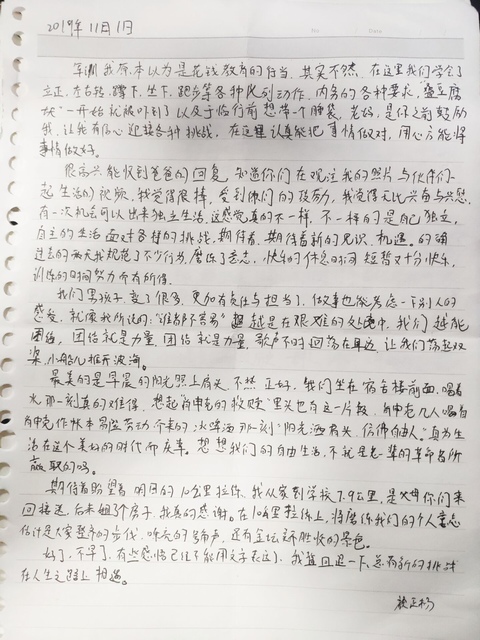 2019年11月1日
军训我原本以为是花钱教育的行当,其实不然,在这里我们学会了
立正,左右转,蹲下,坐下,跑步等各种队列动作,内务的各种要求,叠豆腐
块"一开始就被吓到了以及于临行前想带个睡袋,老妈,是你之前鼓励
我,让我有信心迎接各种挑战,在这里认真能把事情做对,用心方能将
事情做好。
很高兴能收到爸爸的回复,知道你们在观注我的照片与伙伴们一
起生活的视频,我觉得很棒,受到你们的鼓励,我觉得无比兴奋与兴愁,
有一次机会可以出来独立生活,这感觉真的不一样,不一样的是自己独立,
自主的生活面对各样的挑战,期待着,期待着新的见识,机遇。的确
过去的两天我规范了不少行为,磨练了意志,快乐的休息时间短暂又十分快乐,
训练的时间努力有所得。
我们男孩子,变了很多,更加有责任与担当了,做事也能考虑一下别人的
感受,就像我所说的:"谁都不容易"越是在艰难的处境中,我们越能
团结,团结就是力量,团结就是力量,歌声不时回荡在耳边,让我们荡起双
桨,小船儿推开波浪。
最美的是早晨的阳光照上肩头,不热正好,我们坐在宿舍楼前面,喝着
水,那一刻真的难得,想起"肖申克的救赎"里头也有这一片段,肖申克几人喝着
肖申克作账本冒险劳动个来的冰啤酒那一刻"阳光洒肩头,仿佛自由人"真为生
活在这个美好的时代而庆幸。想想我们的自由生活,不就是老一辈的革命者所
赢取的吗。
期待着盼望着明日的10公里拉练,我从家到学校7.9公里,是父母你们来
回接送,后来租了房子,我真的感谢。在10公里拉练上,将磨练我们的个人意志
估计是大家整齐的步伐,嘹亮的口号声,还有金坛美不胜收的景色。
好了,不早了,有些感悟已经不能用文字表达,我且回退一下,总有新的挑战
在人生之路上相遇。